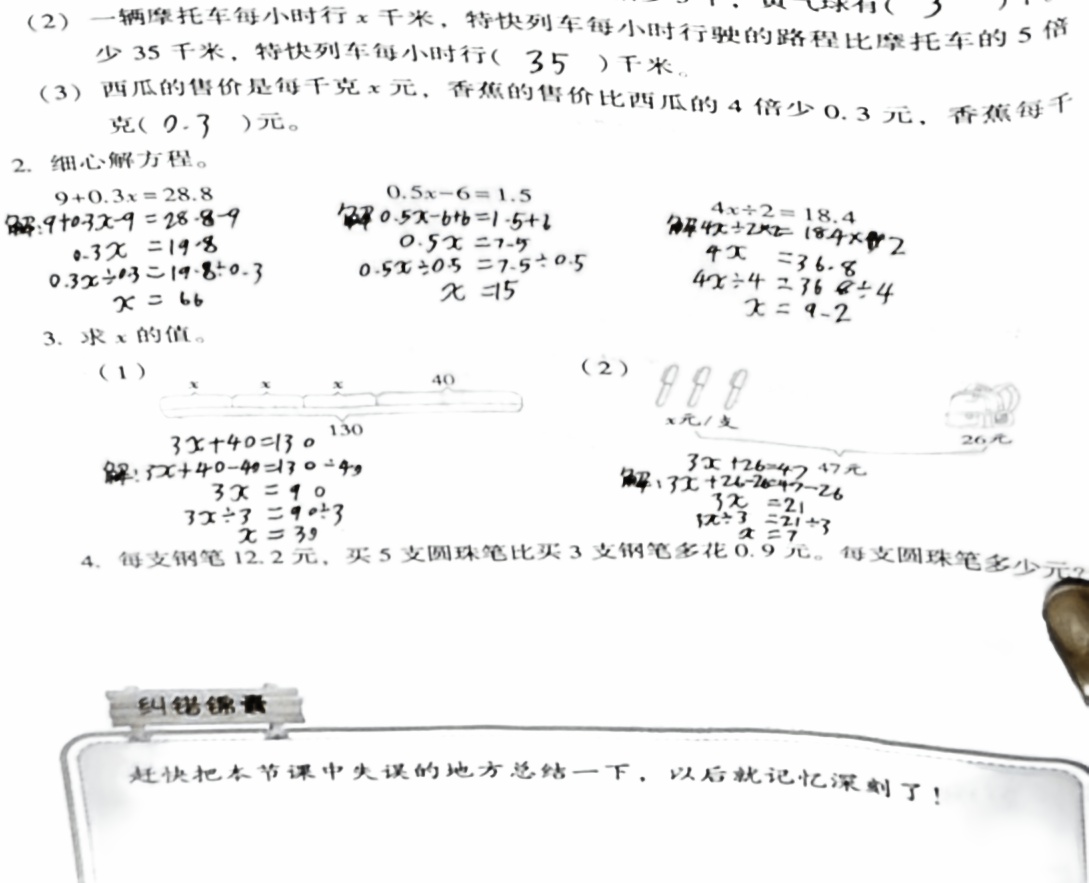 球有( 3 )
(2) 一辆摩托车每小时行 x 千米，特快列车每小时行驶的路程比摩托车的 5 倍
少 35 千米，特快列车每小时行( 35 )千米。
(3) 西瓜的售价是每千克 x 元，香蕉的售价比西瓜的 4 倍少 0.3 元，香蕉每千
克( 0.3 )元。
2. 细心解方程。
9+0.3x=28.8
解:9+0.3x-9=28.8-9
0.3x=19.8
0.3x÷0.3=19.8÷0.3
x=66
0.5x-6=1.5
解 0.5x-6+6=1.5+6
0.5x=7.5
0.5x÷0.5=7.5÷0.5
x=15
4x÷2=18.4
解 4x÷2×2=18.4×2
4x=36.8
4x÷4=36.8÷4
x=9.2
3. 求 x 的值。
(1)
x x x 40
130
3x+40=130
解:3x+40-40=130-40
3x=90
3x÷3=90÷3
x=30
(2)
x元/支
26元
47元
3x+26=47
解:3x+26-26=47-26
3x=21
3x÷3=21÷3
x=7
4. 每支钢笔 12.2 元，买 5 支圆珠笔比买 3 支钢笔多花 0.9 元。每支圆珠笔多少元?
纠错锦囊
赶快把本节课中失误的地方总结一下，以后就记忆深刻了!